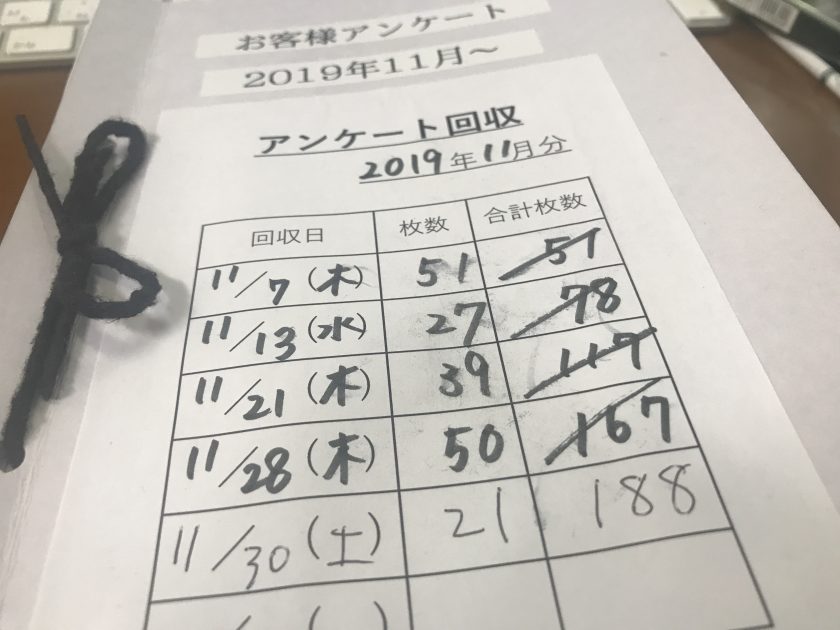 お客様アンケート
2019年11月～
アンケート回収
2019年11月分
回収日 枚数 合計枚数
11/7(木) 51 51
11/13(水) 27 78
11/21(木) 39 117
11/28(木) 50 167
11/30(土) 21 188
/ ( )